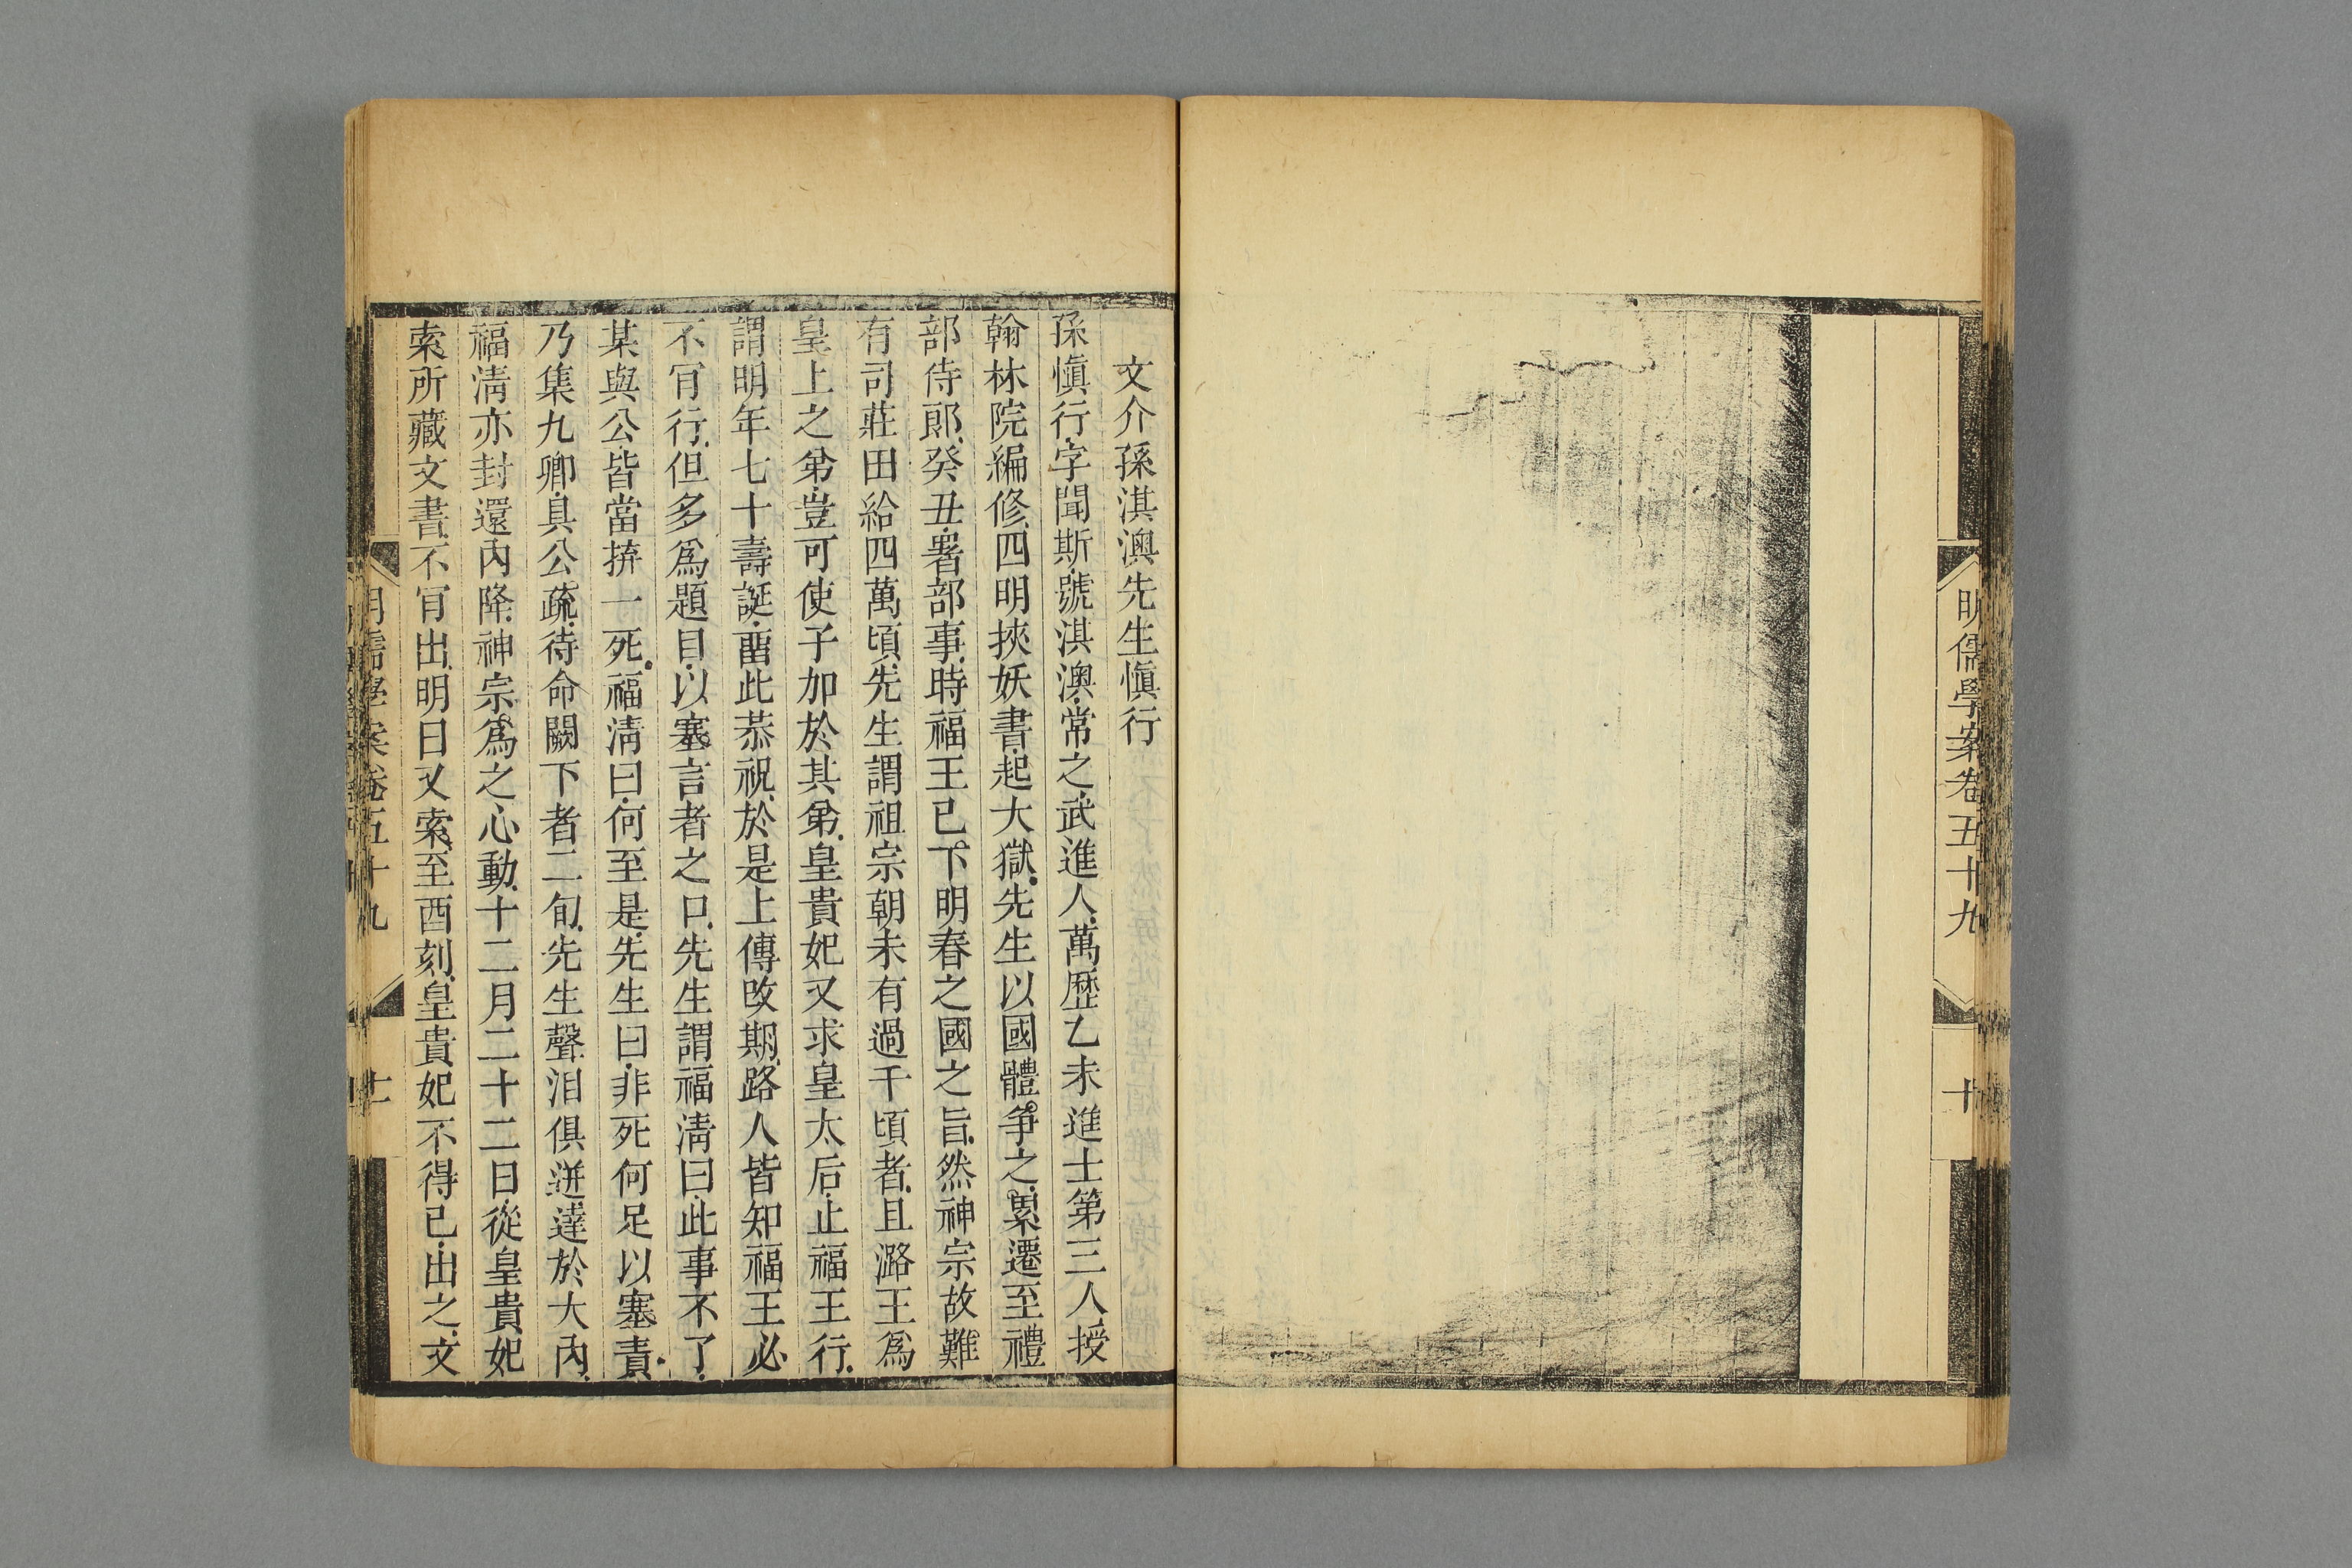 明儒學案卷五十九
十
文介孫淇澳先生愼行
孫愼行字聞斯號淇澳常之武進人萬歷乙未進士第三人授
翰林院編修四明挾妖書起大獄先生以國體爭之累遷至禮
部侍郎癸丑署部事時福王已下明春之國之旨然神宗故難
有司莊田給四萬頃先生謂祖宗朝未有過千頃者且潞王爲
皇上之弟豈可使子加於其弟皇貴妃又求皇太后止福王行
謂明年七十壽誕畱此恭祝於是上傳改期路人皆知福王必
不肎行但多爲題目以塞言者之口先生謂福淸曰此事不了
某與公皆當拚一死福淸曰何至是先生曰非死何足以塞責
乃集九卿具公疏待命闕下者二旬先生聲泪俱迸達於大內
福淸亦封還內降神宗爲之心動十二月二十二日從皇貴妃
索所藏文書不肎出明日又索至酉刻皇貴妃不得已出之文
明儒學案卷五十九